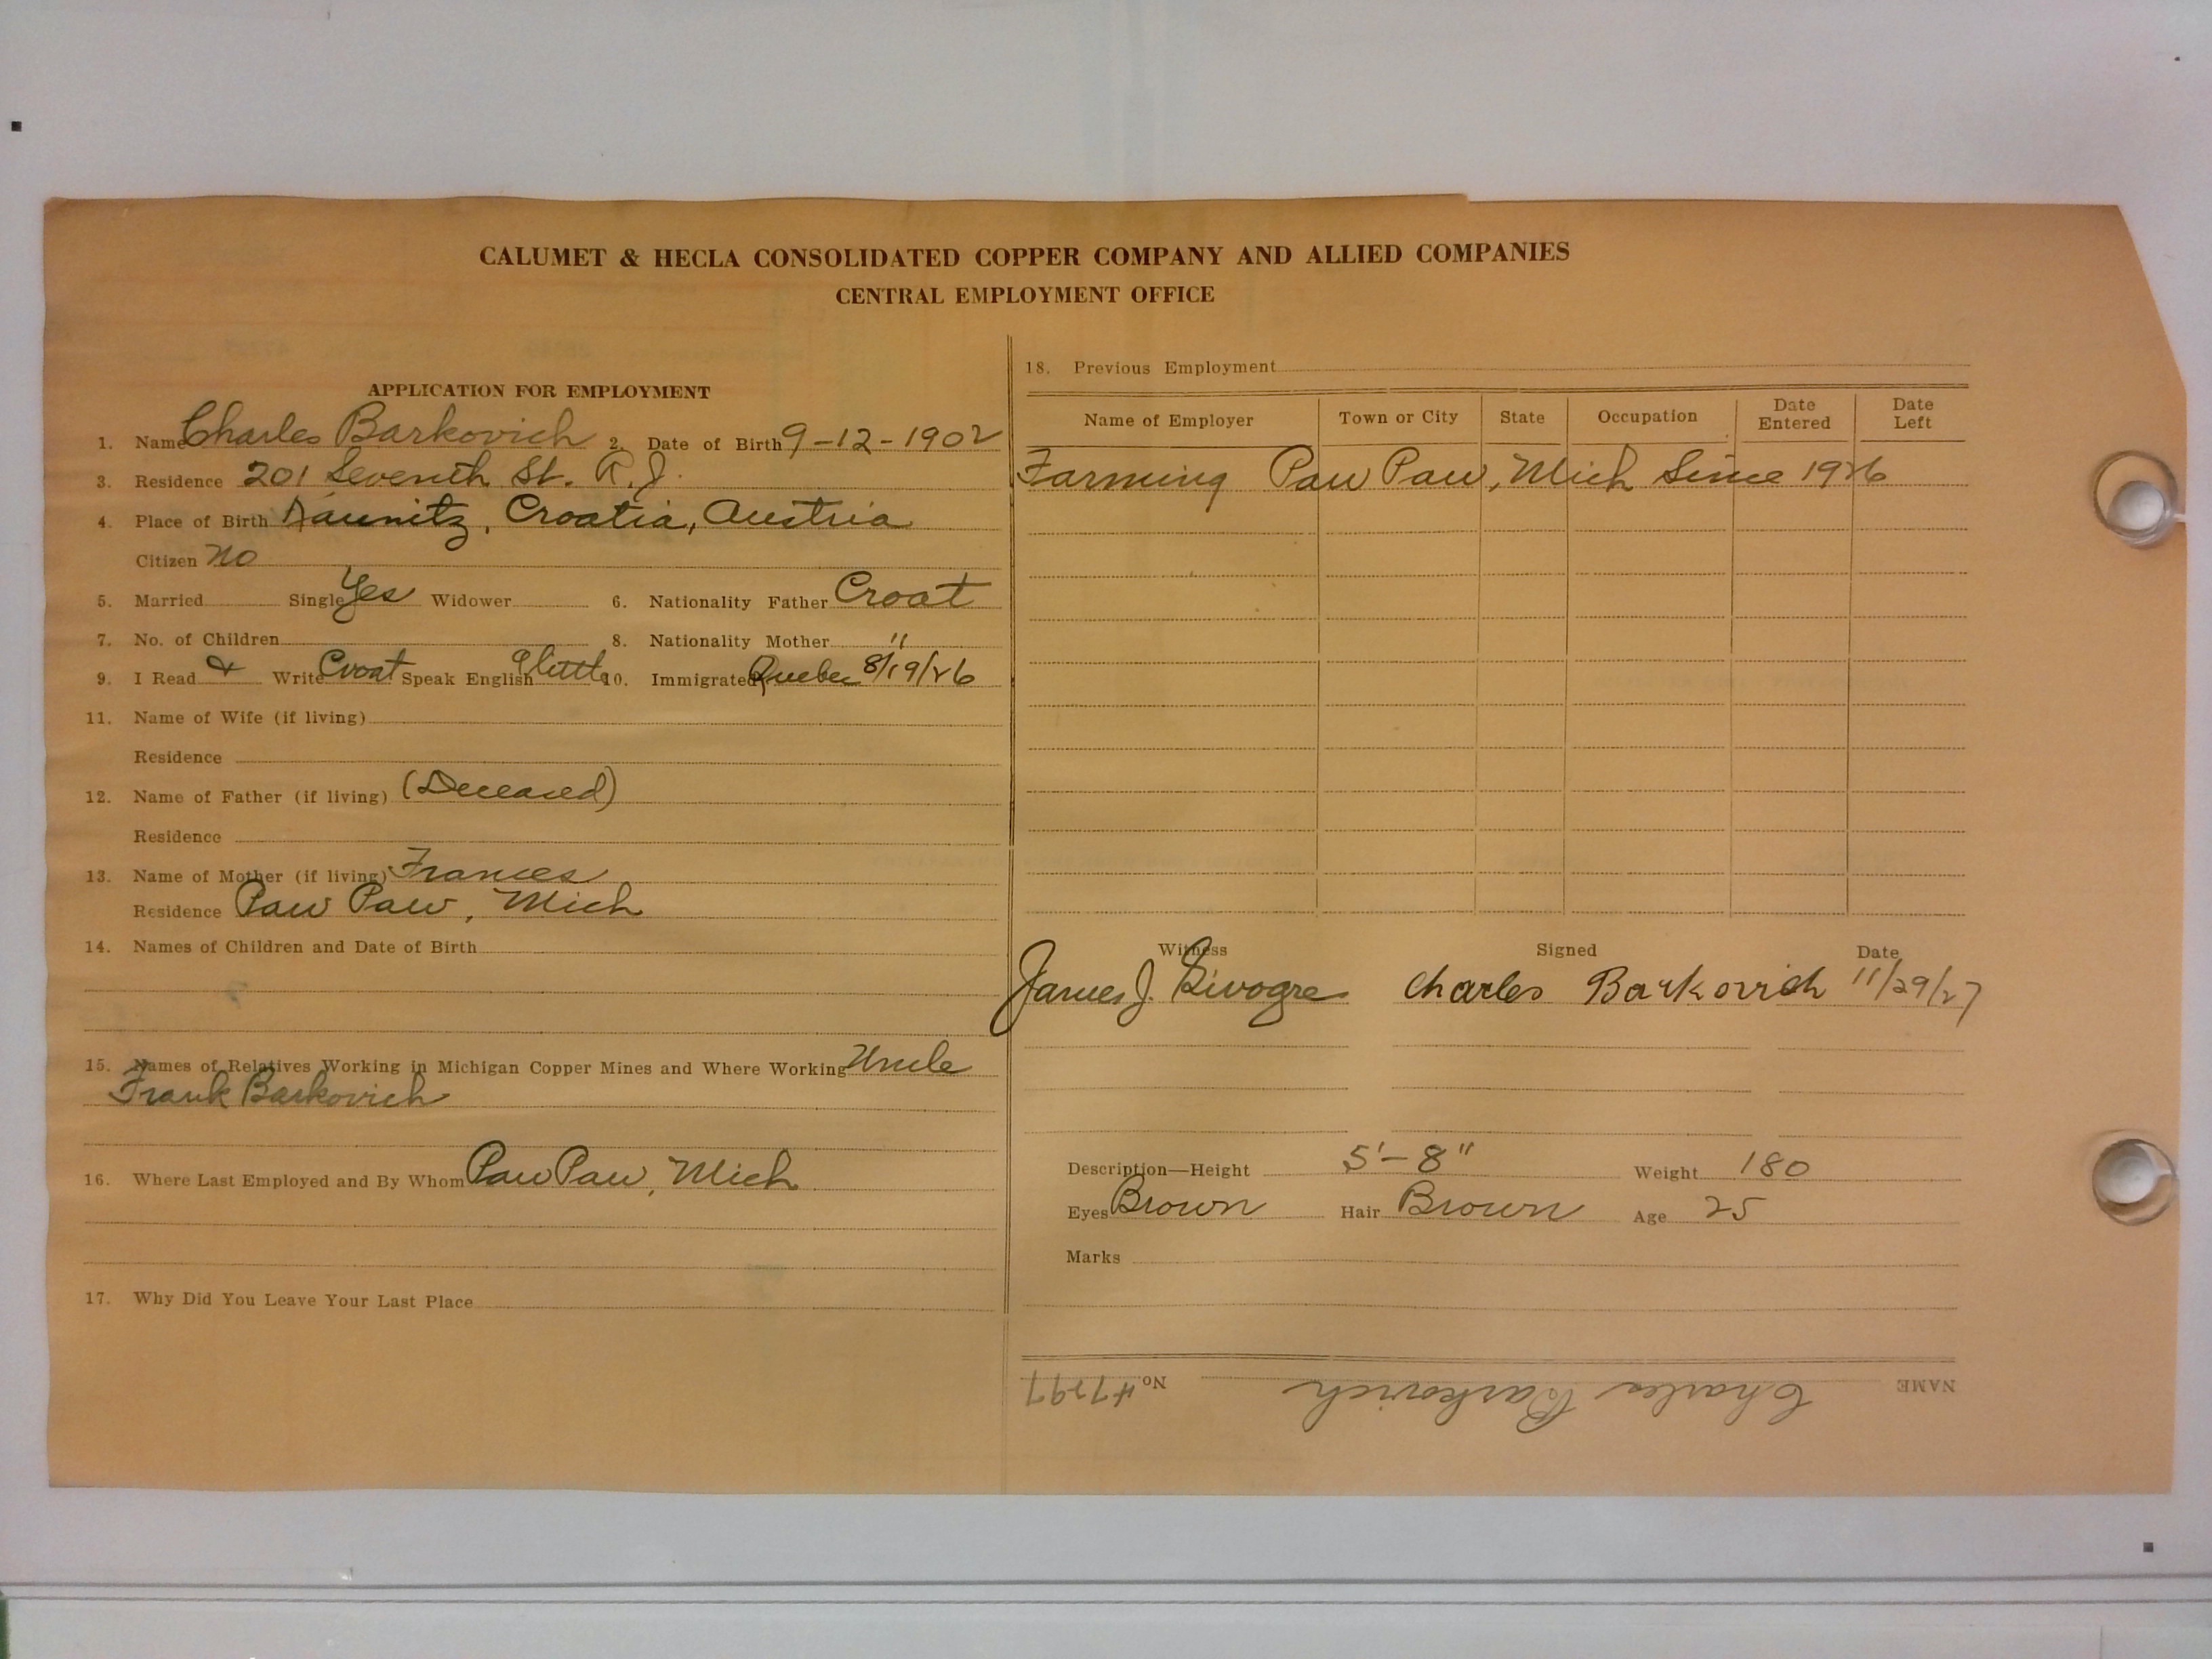 CALUMET & HECLA CONSOLIDATED COPPER COMPANY AND ALLIED COMPANIES
CENTRAL EMPLOYMENT OFFICE
APPLICATION FOR EMPLOYMENT
1. Name Charles Barkovich 2. Date of Birth 9-12-1902
3. Residence 201 Seventh St. R.J.
4. Place of Birth Croatia, Austria
Citizen No
5. Married Single Yes Widower 6. Nationality Father Croat
7. No. of Children 8. Nationality Mother "
9. I Read & Write Croat Speak English a little 10. Immigrated Quebec 8/19/26
11. Name of Wife (if living)
Residence
12. Name of Father (if living) (Deceased)
Residence
13. Name of Mother (if living) Frances
Residence Paw Paw, Mich
14. Names of Children and Date of Birth
15. Names of Relatives Working in Michigan Copper Mines and Where Working Uncle
Frank Barkovich
16. Where Last Employed and By Whom Paw Paw, Mich
17. Why Did You Leave Your Last Place
18. Previous Employment
Name of Employer Town or City State Occupation Date Entered Date Left
Farming Paw Paw, Mich Since 1926
Witness Signed Date
James J. Charles Barkovich 11/29/27
Description—Height 5'-8" Weight 180
Eyes Brown Hair Brown Age 25
Marks
NAME Charles Barkovich No. #7297